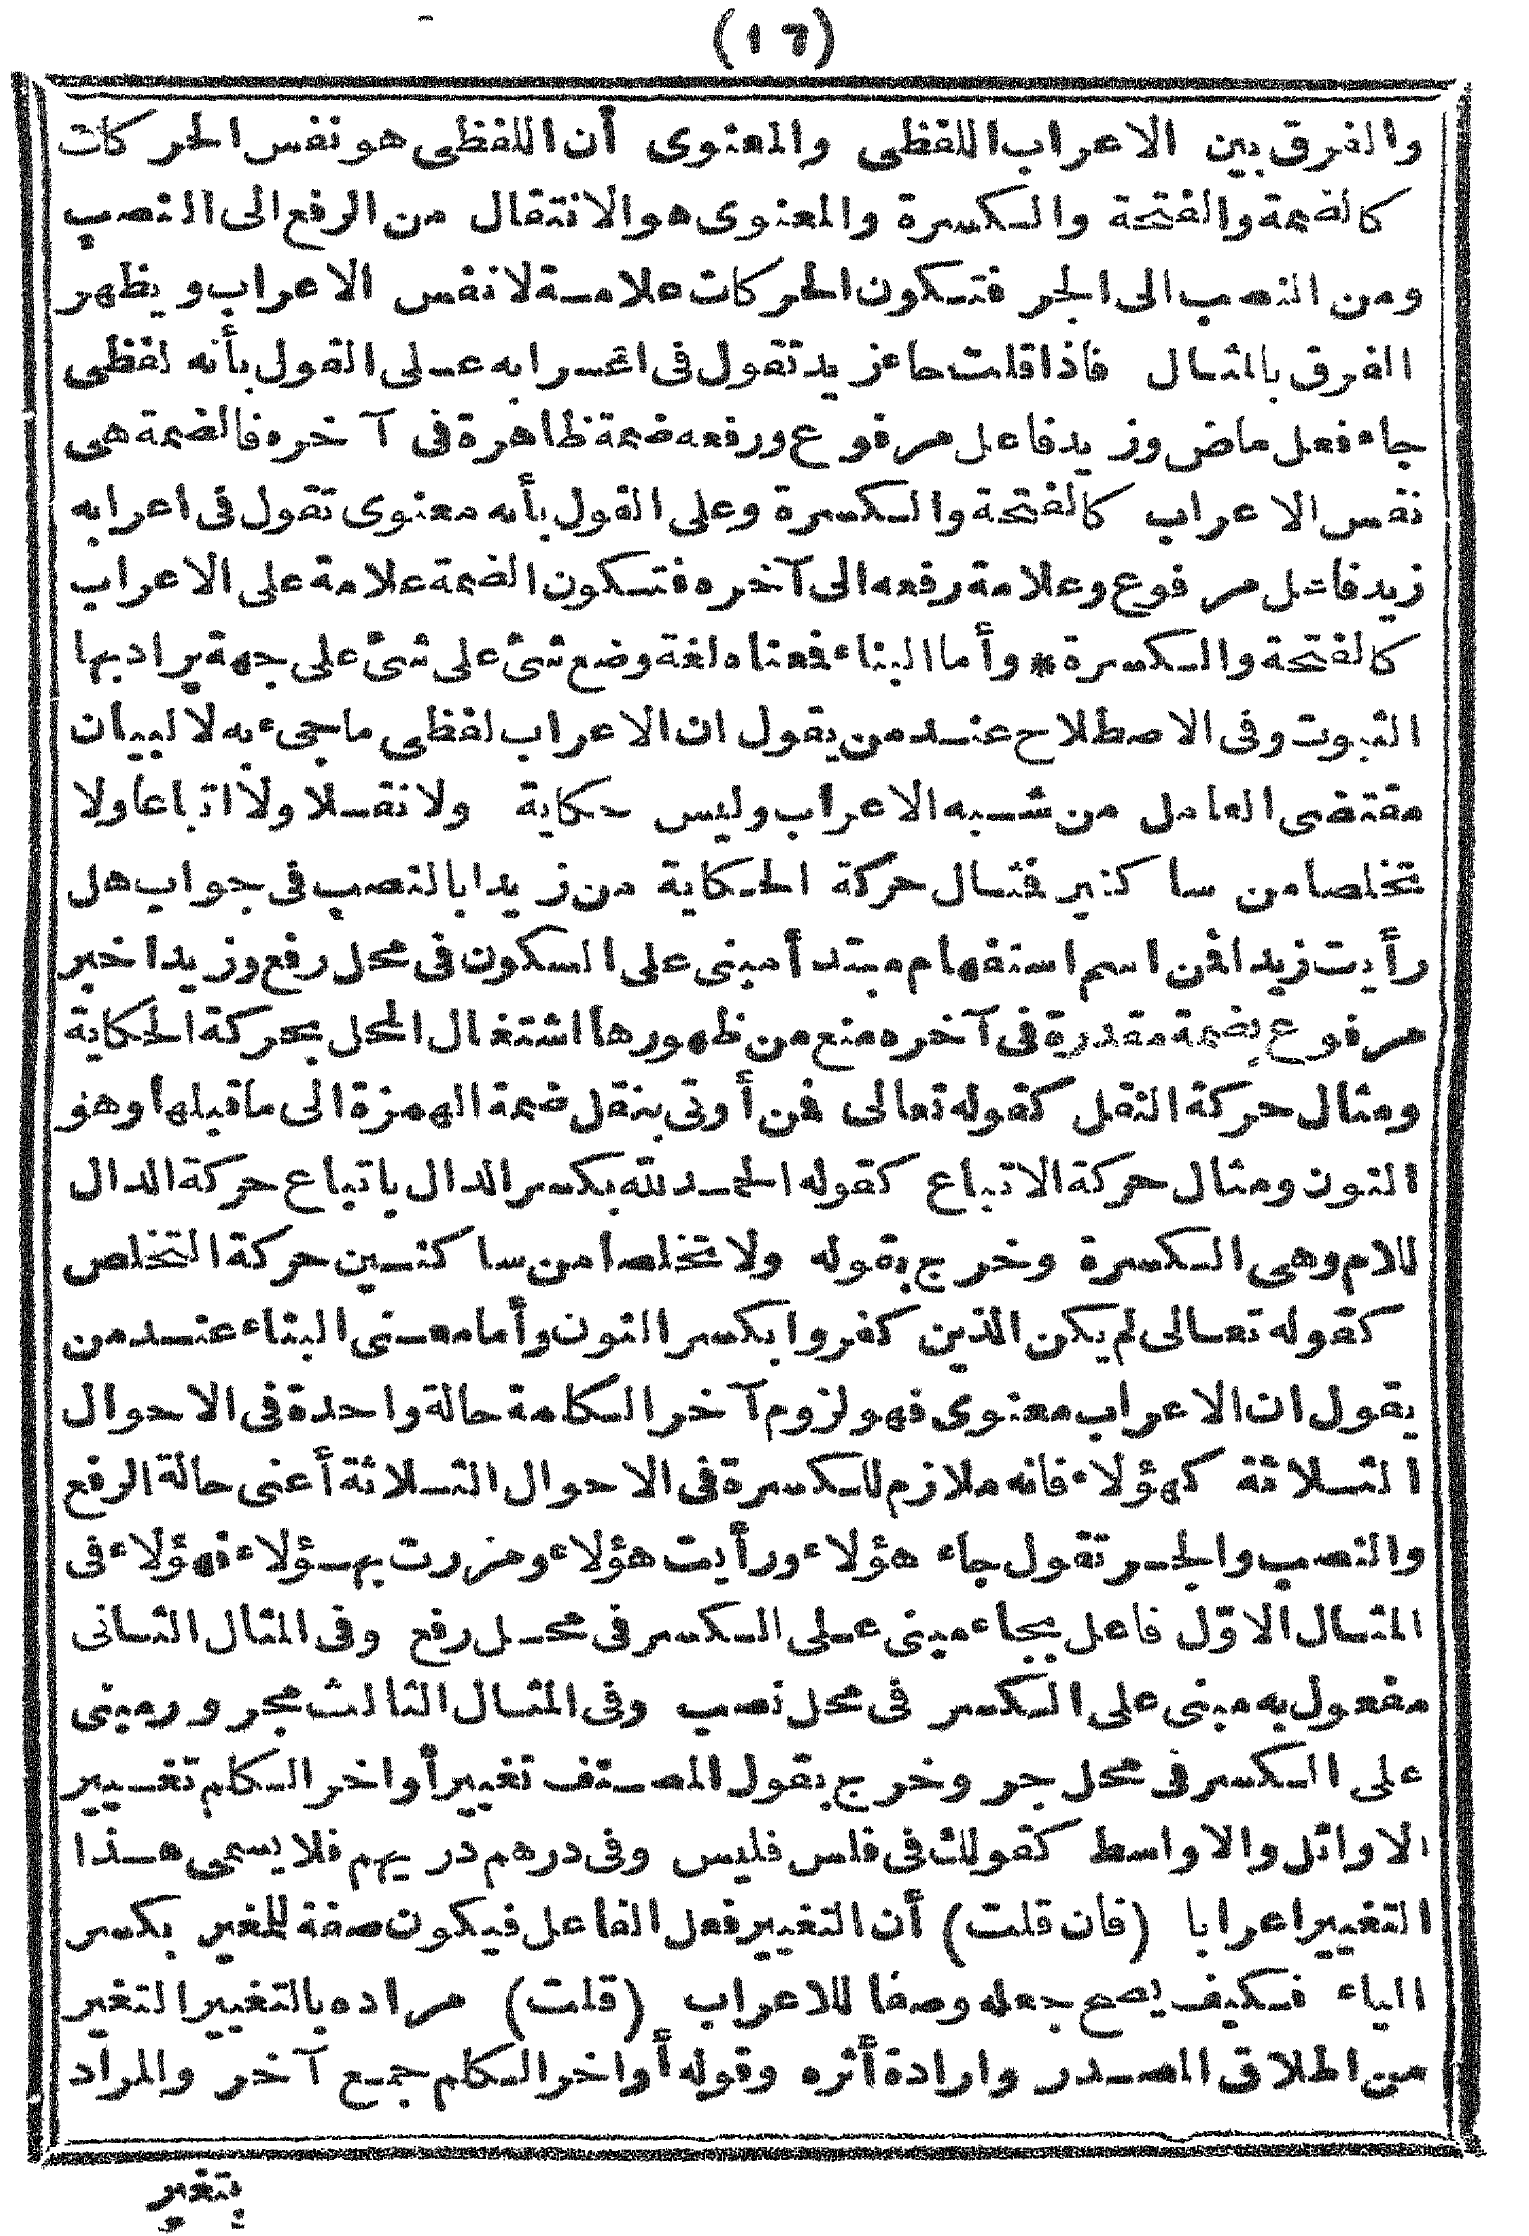 (١٦)
والفرق بين الاعراب اللفظى والمعنوى أن اللفظى هو نفس الحركات
كالضمة والفتحة والكسرة والمعنوى هو الانتقال من الرفع الى النصب
ومن النصب الى الجر فتكون الحركات علامة لا نفس الاعراب ويظهر
الفرق بالمثال فاذا قلت جاء زيد تقول فى اعرابه على القول بأنه لفظى
جاء فعل ماض وزيد فاعل مرفوع ورفعه ضمة ظاهرة فى آخره فالضمة هى
نفس الاعراب كالفتحة والكسرة وعلى القول بأنه معنوى تقول فى اعرابه
زيد فاعل مرفوع وعلامة رفعه الى آخره فتكون الضمة علامة على الاعراب
كالفتحة والكسرة * وأما البناء فمعناه لغة وضع شئ على شئ على جهة يراد بها
الثبوت وفى الاصطلاح عند من يقول ان الاعراب لفظى ما جىء به لا لبيان
مقتضى العامل من شبه الاعراب وليس حكاية ولا نقلا ولا اتباعا ولا
تخلصا من ساكنين فمثال حركة الحكاية من زيدا بالنصب فى جواب هل
رأيت زيدا فمن اسم استفهام مبتدأ مبنى على السكون فى محل رفع وزيدا خبر
مرفوع بضمة مقدرة فى آخره منع من ظهورها اشتغال المحل بحركة الحكاية
ومثال حركة النقل كقوله تعالى فمن أوتى بنقل ضمة الهمزة الى ما قبلها وهو
النون ومثال حركة الاتباع كقوله الحمد لله بكسر الدال باتباع حركة الدال
للام وهى الكسرة وخرج بقوله ولا تخلصا من ساكنين حركة التخلص
كقوله تعالى لم يكن الذين كفروا بكسر النون وأما معنى البناء عند من
يقول ان الاعراب معنوى فهو لزوم آخر الكلمة حالة واحدة فى الاحوال
الثلاثة كهؤلاء فانه ملازم للكسرة فى الاحوال الثلاثة أعنى حالة الرفع
والنصب والجر تقول جاء هؤلاء ورأيت هؤلاء ومررت بهؤلاء فهؤلاء فى
المثال الاوّل فاعل بجاء مبنى على الكسر فى محل رفع وفى المثال الثانى
مفعول به مبنى على الكسر فى محل نصب وفى المثال الثالث مجرور مبنى
على الكسر فى محل جر وخرج بقول المصنف تغيير أواخر الكلم تغيير
الاوائل والاواسط كقولك فى فلس فليس وفى درهم دريهم فلا يسمى هذا
التغيير اعرابا (فان قلت) أن التغيير فعل الفاعل فيكون صفة للمغير بكسر
الياء فكيف يصح جعله وصفا للاعراب (قلت) مراده بالتغيير التغير
من اطلاق المصدر وارادة أثره وقوله أواخر الكلم جمع آخر والمراد
بتغير